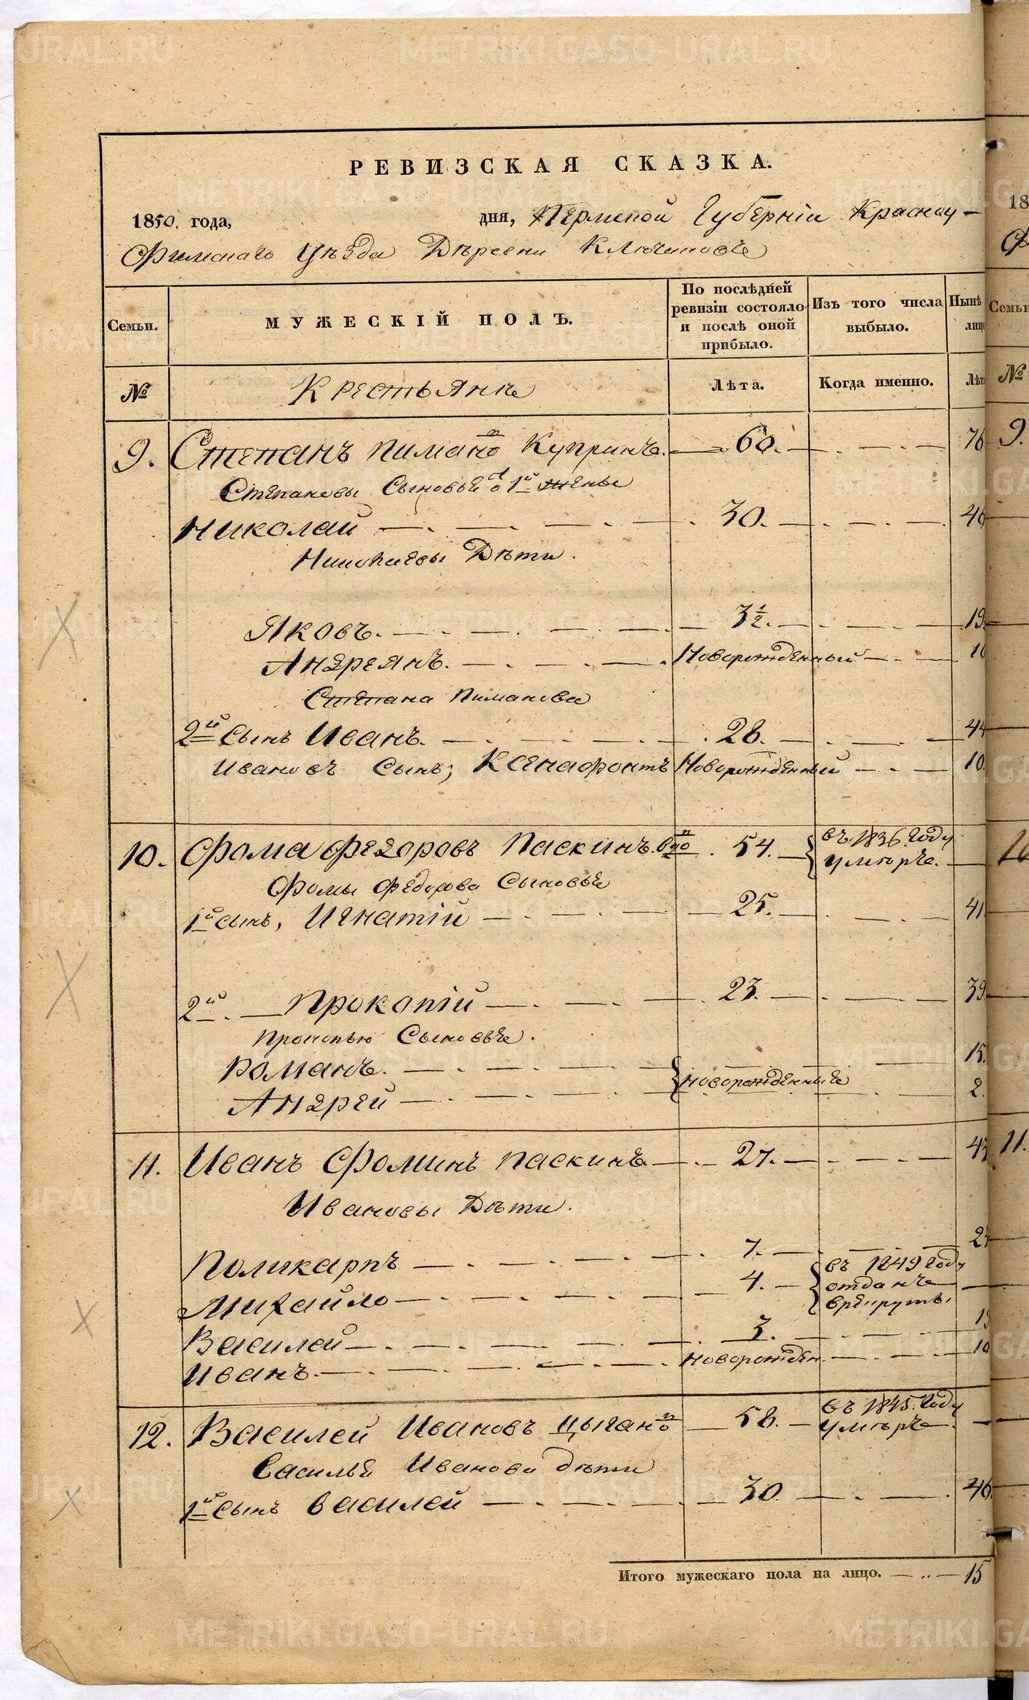 РЕВИЗСКАЯ СКАЗКА.
1850. года, дня, Пермской Губерніи Красноу-
фимскаго Уѣзда Деревни Ключиковъ
Семьи. МУЖЕСКІЙ ПОЛЪ. По послѣдней ревизіи состояло и послѣ оной прибыло. Изъ того числа выбыло. Нынѣ лиц
№ Крестьяне Лѣта. Когда именно. Лѣт
9. Степанъ Пимано Купринъ. 60. 76
Степановы Сыновья 1й жены
Николай 30. 46
Николаевы Дѣти.
Яковъ. 3½. 19
Андреянъ. Новорожденный 10
Степана Пиманова
2й Сынъ Иванъ. 28. 44
Ивановъ Сынъ; Ксенафонтъ Новорожденный 10
10. Фома Федоровъ Паскинъ. 54. въ 1836. Году умѣръ.
Фомы Федорова Сыновья
1й сынъ, Игнатій 25. 41
2й. Прокопій 23. 39
Прокопью Сыновья.
Романъ. новорожденные 15.
Андрей 2.
11. Иванъ Фоминъ Паскинъ 27. 43
Ивановы Дѣти.
Поликарпъ 7. 23
Михайло 4. въ 1849 Году отданъ в рекруты.
Василей 3. 19
Иванъ. новорожден. 10
12. Василей Ивановъ Цыгано 58. въ 1845. Году умѣръ
Василья Иванова дѣти
1й Сынъ Василей 30 46
Итого мужескаго пола на лицо. 15
METRIKI.GASO-URAL.RU